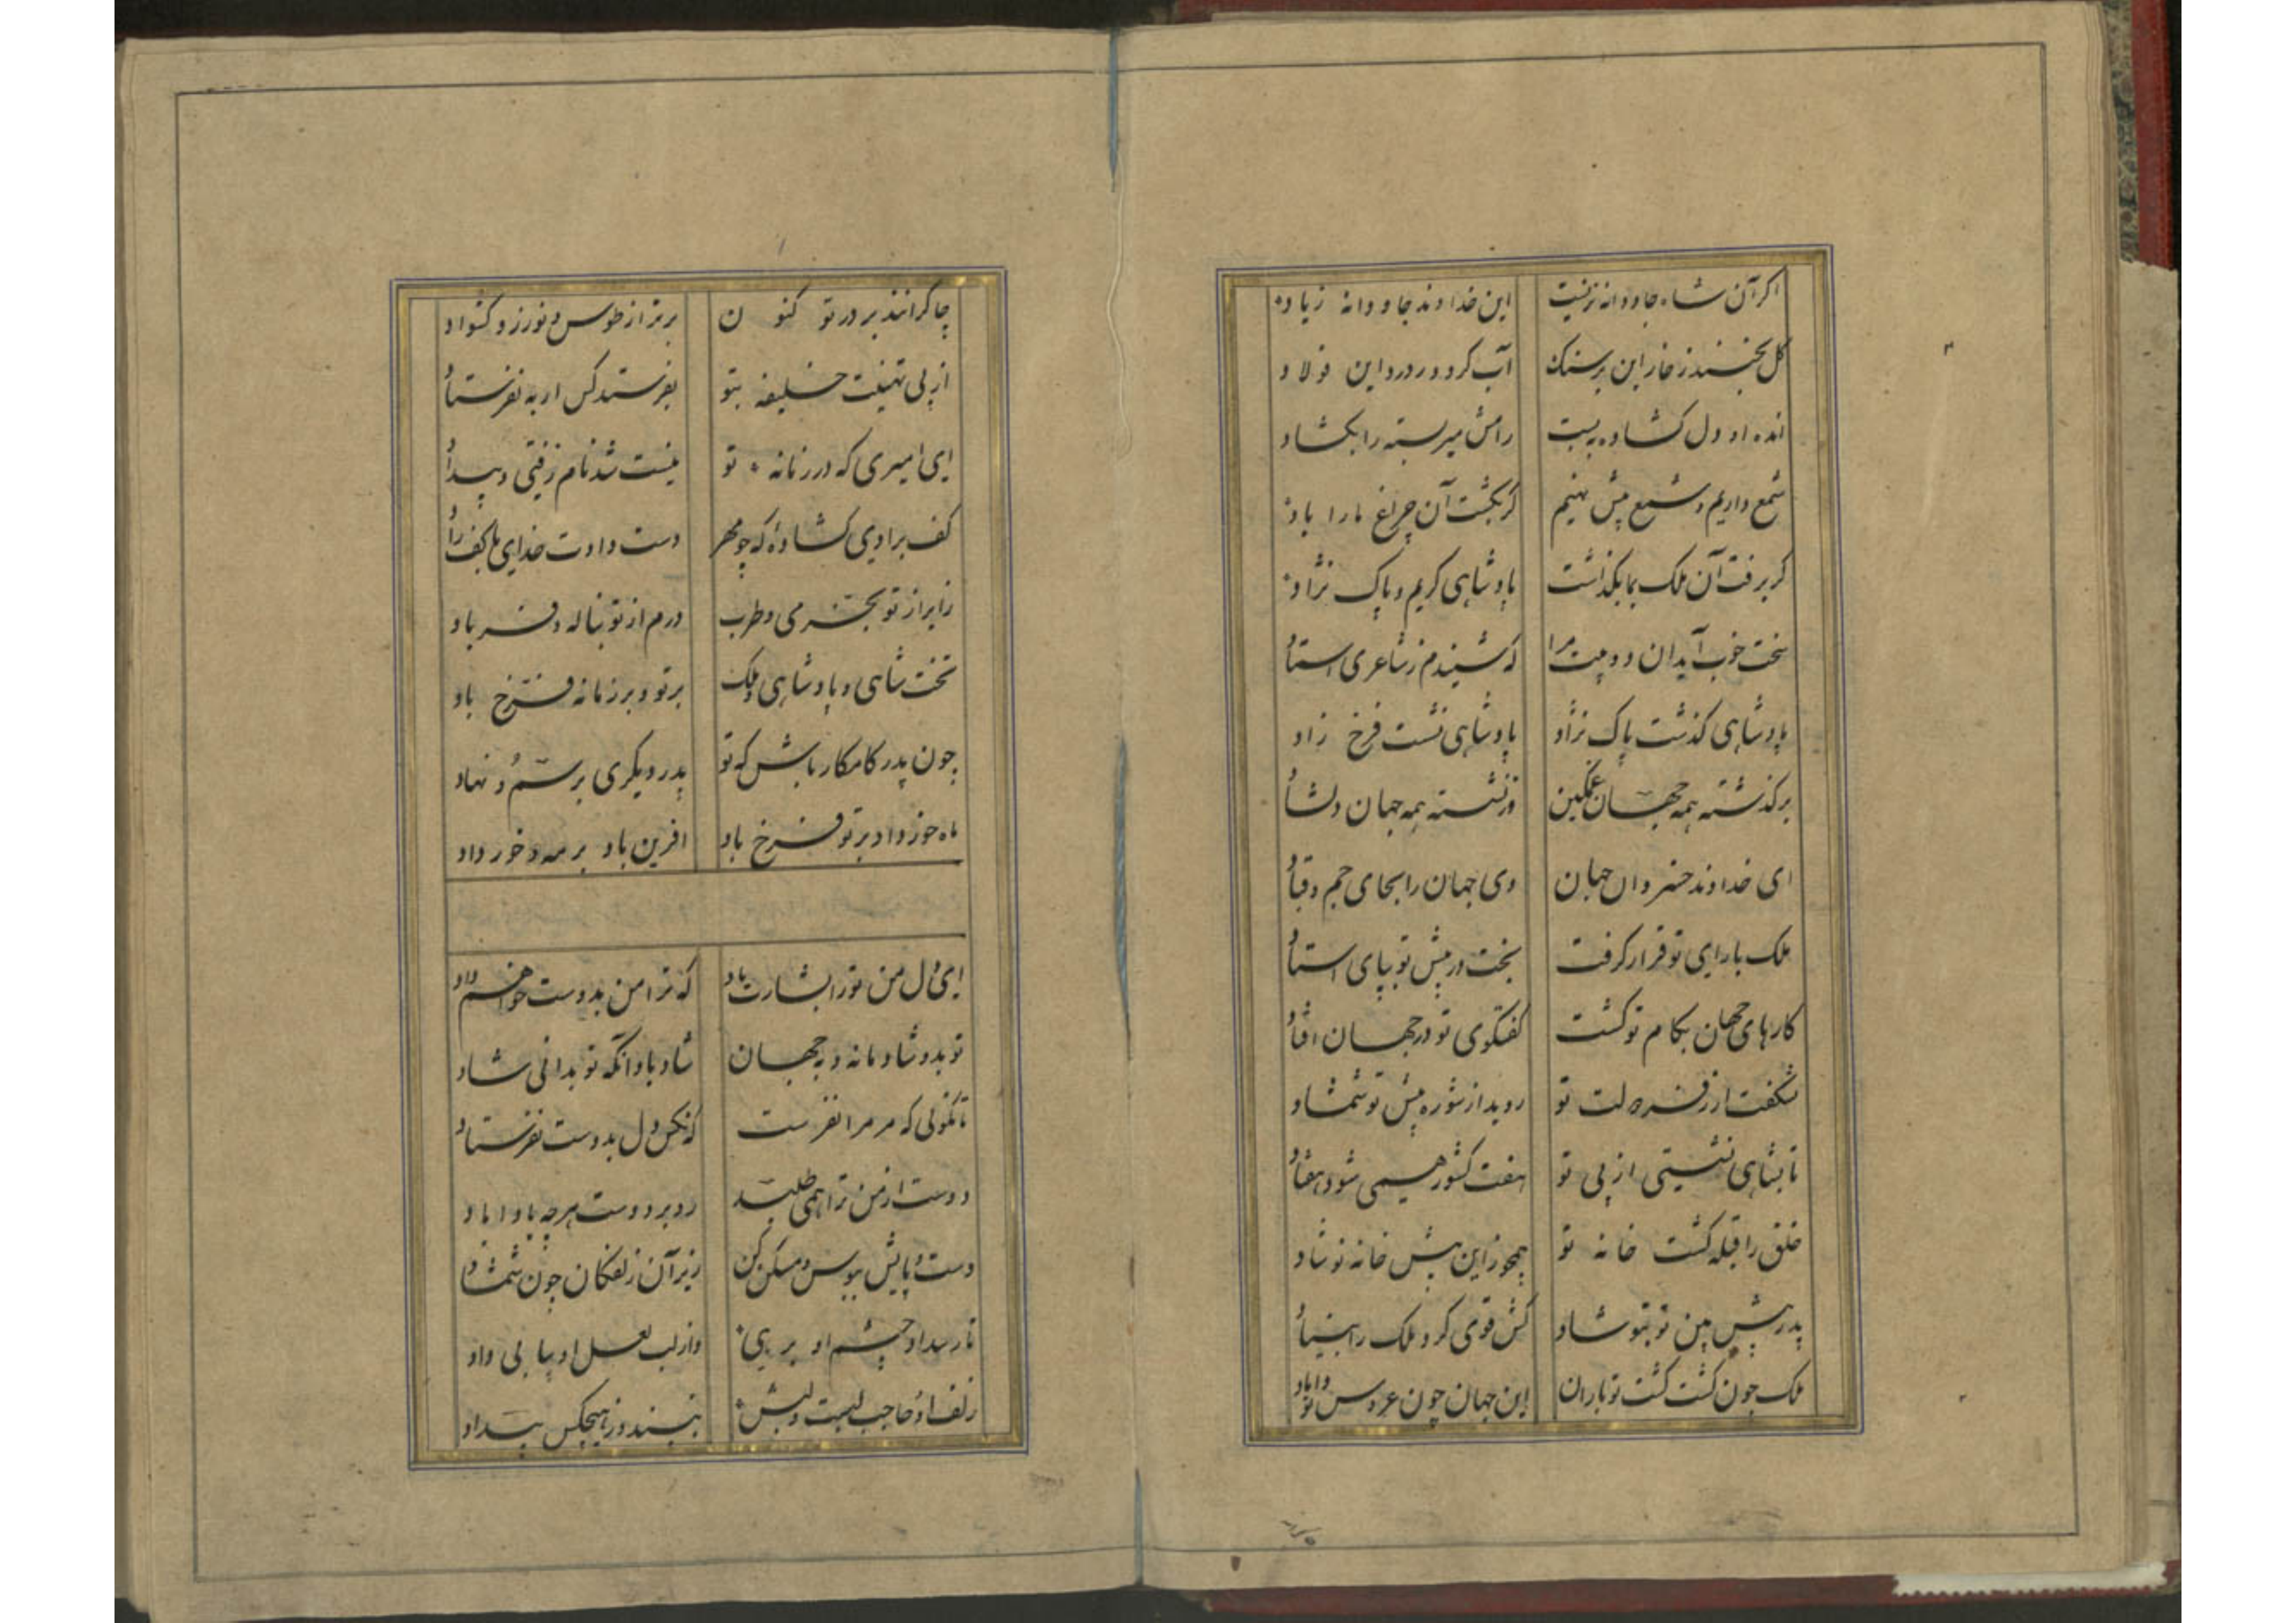 اکر آن شاه جاودانه نزیست این خداوند جاودانه زیاد
کل بخندد ز خار این بر سنک آب کردد ز درد این فولاد
انده او دل کشاده ببست رامش میر بسته را بکشاد
شمع داریم و شمع پیش نهیم کر بکشت آن چراغ ما را باد
کر برفت آن ملک بما بکذاشت پادشاهی کریم و پاک نژاد
سخت خوب آید این دو بیت مرا که شنیدم ز شاعری استاد
پادشاهی کذشت پاک نژاد پادشاهی نشست فرخ زاد
بر کذشته همه جهان غمکین وز نشسته همه جهان دلشاد
ای خداوند خسروان جهان وی جهان را بجای جم و قباد
ملک با رای تو قرار کرفت بخت در پیش تو بپای استاد
کارهای جهان بکام تو کشت کفتکوی تو در جهان افتاد
نشکفت ار ز فر دولت تو روید از شوره پیش تو شمشاد
تا بشاهی نشستی از پی تو هفت کشور همی شود هفتاد
خلق را قبله کشت خانه تو همچو زین پیش خانه نوشاد
پدر پیش بین تو بتو شاد کش قوی کرد ملک را بنیاد
ملک چون کشت کشت تو باران این جهان چون عروس تو داماد
چاکرانند بر در تو کنون برتر از طوس و نوذر و کشواد
از پی تهنیت خلیفه بتو بفرستد کس ار به نفرستاد
ای امیری که در زمانه تو نیست شد نام زفتی و بیداد
کف برادی کشاده که چو مهر دست دادت خدای با کف راد
زایر از تو بخرمی و طرب درم از تو بناله و فریاد
تخت شاهی و پادشاهی و ملک بر تو و بر زمانه فرخ باد
چون پدر کامکار باش که تو پدر دیکری برسم و نهاد
ماه خرداد بر تو فرخ باد افرین باد بر مه خورداد
ای دل من تو را بشارت باد که ترا من بدوست خواهم داد
تو بدو شادمانه و بجهان شاد باد انکه تو بدانی شاد
تا نکوئی که مر مرا نفرست که کس دل بدوست نفرستاد
دوست از من ترا همی طلبد رو بر دوست هر چه باداباد
دست و پایش ببوس و مسکن کن زیر آن زلفکان چون شمشاد
تا ز بیداد چشم او برهی وز لب لعل او بیابی داد
زلف او حاجب لبست و لبش نپسندد ز هیچکس بیداد